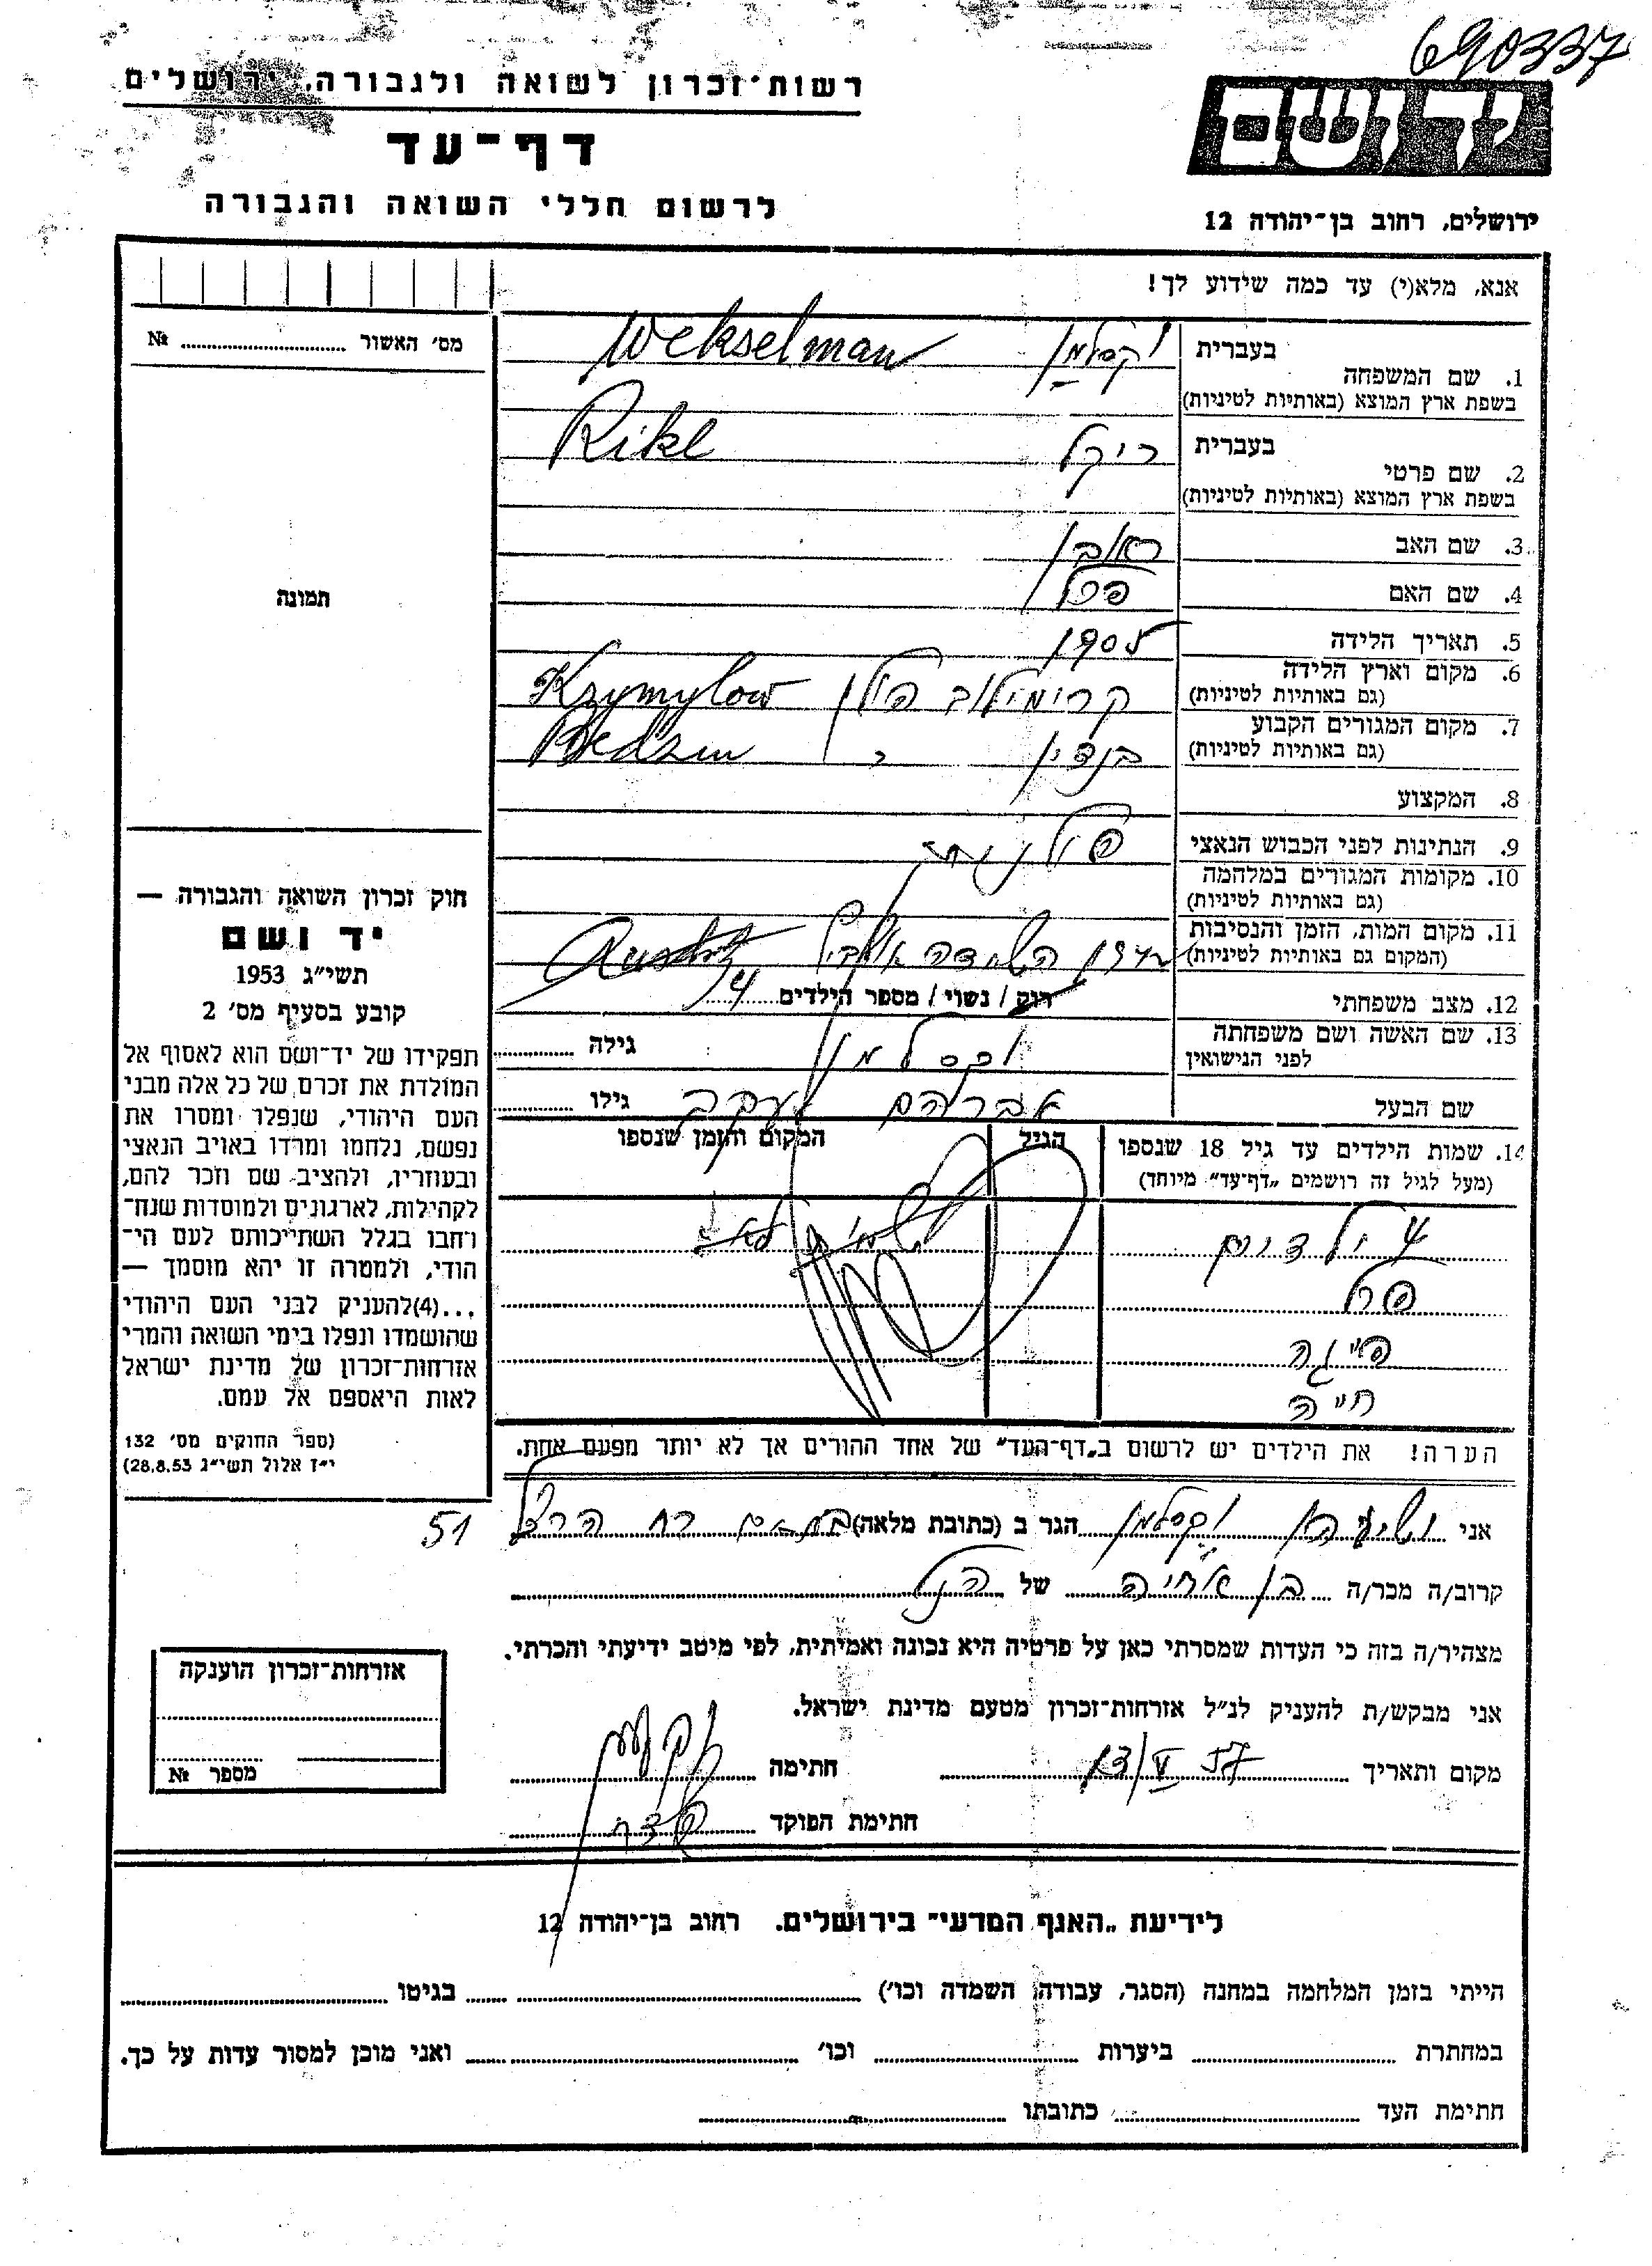 690337
רשות-זכרון לשואה ולגבורה, ירושלים
דף-עד
לרשום חללי השואה והגבורה
יד ושם
ירושלים, רחוב בן-יהודה 12
אנא, מלא(י) עד כמה שידוע לך!
מס' האשור № 
1. שם המשפחה בעברית וקסלמן Wekselman
בשפת ארץ המוצא (באותיות לטיניות)
2. שם פרטי בעברית ריקל Rikl
בשפת ארץ המוצא (באותיות לטיניות)
3. שם האב ראובן
4. שם האם פרל
תמונה
5. תאריך הלידה 1905
6. מקום וארץ הלידה קרימילוב פולין Krzymylow
(גם באותיות לטיניות)
7. מקום המגורים הקבוע בנדין Bedzin
(גם באותיות לטיניות)
8. המקצוע
9. הנתינות לפני הכבוש הנאצי פולנית
10. מקומות המגורים במלחמה
(גם באותיות לטיניות)
11. מקום המות, הזמן והנסיבות השמדה
(המקום גם באותיות לטיניות)
12. מצב משפחתי רוק / נשוי / מספר הילדים 4
13. שם האשה ושם משפחתה וקסלמן גילה
לפני הנישואין
שם הבעל אברהם יעקב גילו
14. שמות הילדים עד גיל 18 שנספו הגיל המקום והזמן שנספו
(מעל לגיל זה רושמים "דף-עד" מיוחד)
4 ילדים
פרל
פייגה
חיה
הערה! את הילדים יש לרשום ב"דף-העד" של אחד ההורים אך לא יותר מפעם אחת.
חוק זכרון השואה והגבורה —
יד ושם
תשי"ג 1953
קובע בסעיף מס' 2
תפקידו של יד-ושם הוא לאסוף אל
המולדת את זכרם של כל אלה מבני
העם היהודי, שנפלו ומסרו את
נפשם, נלחמו ומרדו באויב הנאצי
ובעוזריו, ולהציב שם וזכר להם,
לקהילות, לארגונים ולמוסדות שנח-
רבו בגלל השתייכותם לעם הי-
הודי, ולמטרה זו יהא מוסמך —
...(4)להעניק לבני העם היהודי
שהושמדו ונפלו בימי השואה והמרי
אזרחות-זכרון של מדינת ישראל
לאות היאספם אל עמם.
(ספר החוקים מס' 132
י"ז אלול תשי"ג 28.8.53)
אני וקסלמן הגר ב (כתובת מלאה) רח הרצל 51
קרוב/ה מכר/ה בן אחיה של הנ"ל
מצהיר/ה בזה כי העדות שמסרתי כאן על פרטיה היא נכונה ואמיתית, לפי מיטב ידיעתי והכרתי.
אני מבקש/ת להעניק לנ"ל אזרחות-זכרון מטעם מדינת ישראל.
מקום ותאריך חתימה
חתימת הפוקד
אזרחות-זכרון הוענקה
מספר №
לידיעת "האגף המדעי" בירושלים, רחוב בן-יהודה 12
הייתי בזמן המלחמה במחנה (הסגר, עבודה, השמדה וכו') בגיטו
במחתרת ביערות וכו' ואני מוכן למסור עדות על כך.
חתימת העד כתובתו